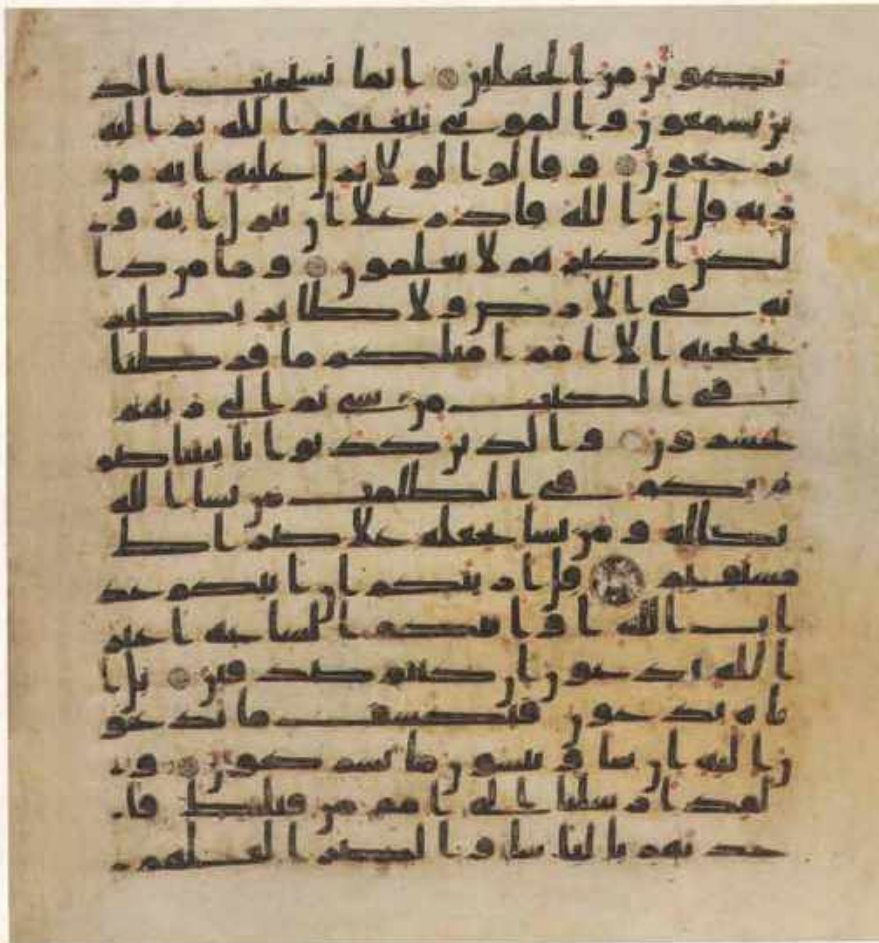 تكونن من الجهلين انما يستجيب الذ
ين يسمعون والموتى يبعثهم الله ثم اليه
يرجعون وقالوا لولا نزل عليه ايه من
ربه قل ان الله قادر علا ان ينزل ايه و
لكن اكثرهم لا يعلمون وما من دا
به في الارض ولا طاير يطير
بجنحيه الا امم امثلكم ما فرطنا
في الكتب من شي ثم الى ربهم
يحشرون والذين كذبوا باييتنا صم
وبكم في الظلمت من يشا الله
يضلله ومن يشا يجعله علا صراط
مستقيم قل اريتكم ان اتيكم عذ
اب الله او اتتكم الساعه اغير
الله تدعون ان كنتم صدقين بل ا
ياه تدعون فيكشف ما تدعو
ن اليه ان شا وتنسون ما تشركون و
لقد ارسلنا الى امم من قبلك فا
خذنهم بالباسا والضرا لعلهم